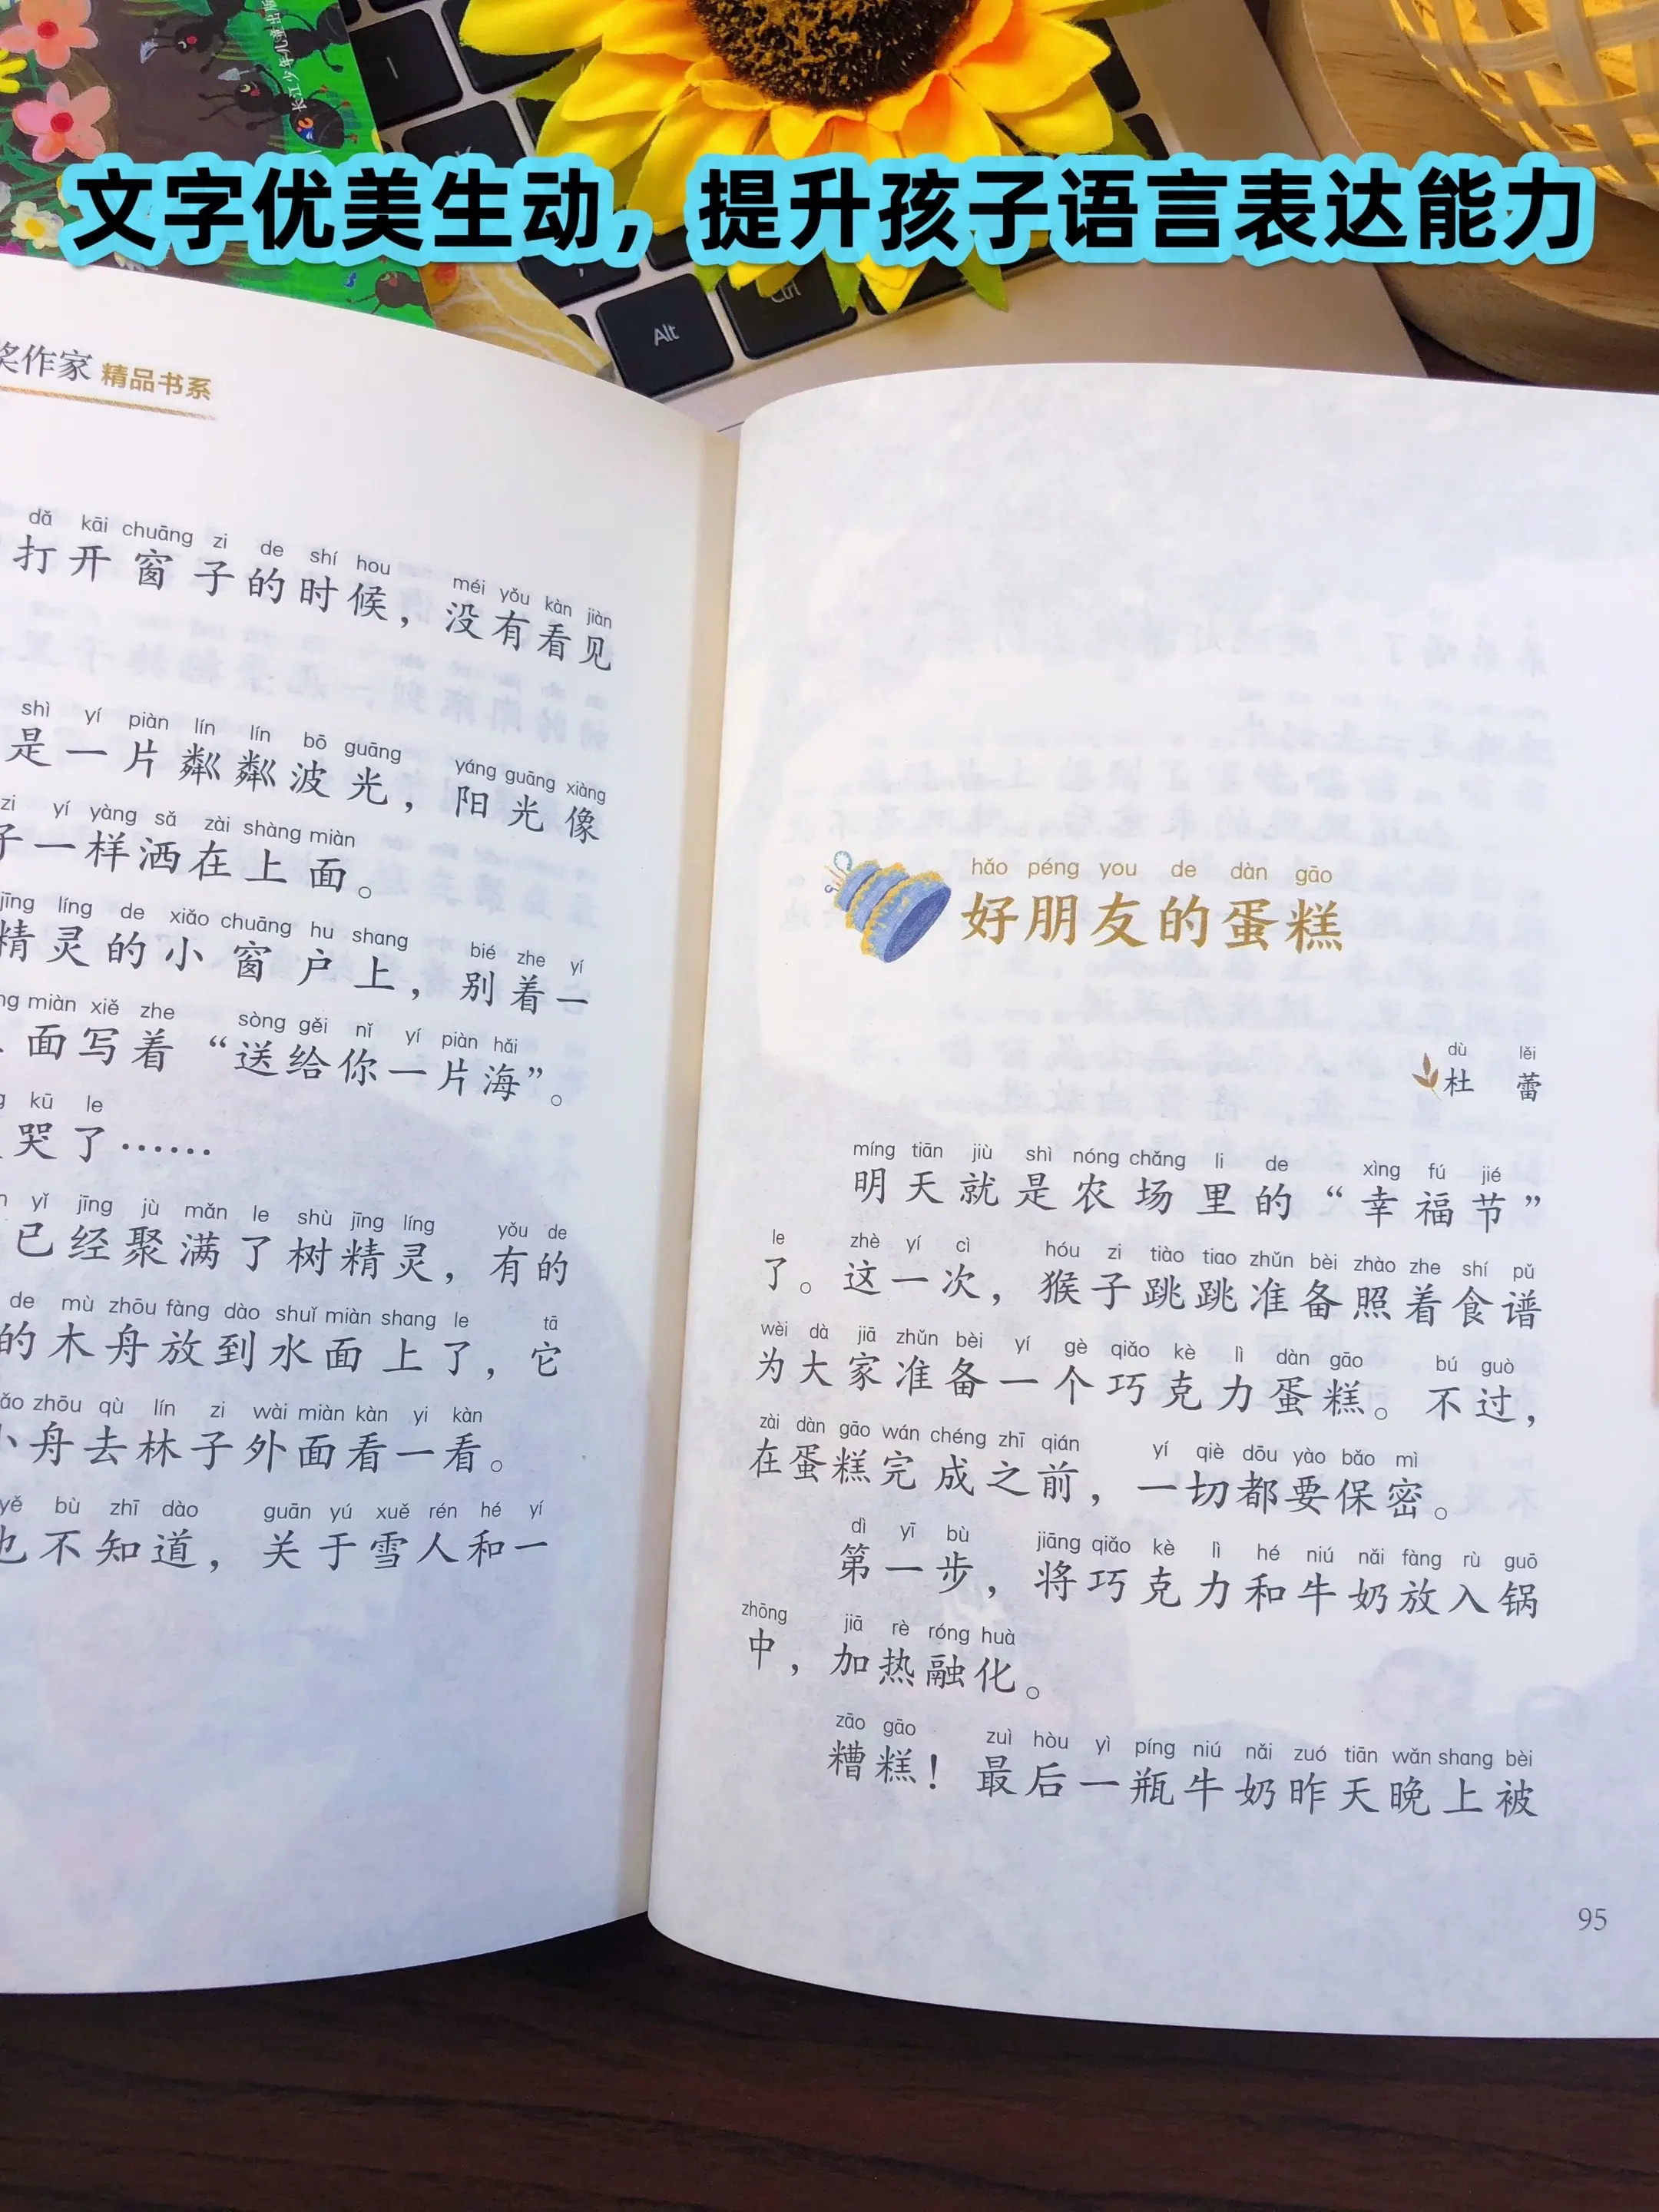 长江少年儿童出版
文字优美生动，提升孩子语言表达能力
Alt
Ctrl
奖作家 精品书系
dǎ kāi chuāng zi de shí hou méi yǒu kàn jiàn
打开窗子的时候，没有看见
shì yí piàn lín lín bō guāng yáng guāng xiàng
是一片粼粼波光，阳光像
zi yí yàng sǎ zài shàng miàn
子一样洒在上面。
jīng líng de xiǎo chuāng hu shang bié zhe yí
精灵的小窗户上，别着一
miàn xiě zhe sòng gěi nǐ yí piàn hǎi
面写着“送给你一片海”。
kū le
哭了……
yǐ jīng jù mǎn le shù jīng líng yǒu de
已经聚满了树精灵，有的
de mù zhōu fàng dào shuǐ miàn shang le tā
的木舟放到水面上了，它
zhōu qù lín zi wài miàn kàn yi kàn
小舟去林子外面看一看。
yě bù zhī dào guān yú xuě rén hé yí
也不知道，关于雪人和一
hǎo péng you de dàn gāo
好朋友的蛋糕
dù lěi
杜蕾
míng tiān jiù shì nóng chǎng li de xìng fú jié
明天就是农场里的“幸福节”
le zhè yí cì hóu zi tiào tiao zhǔn bèi zhào zhe shí pǔ
了。这一次，猴子跳跳准备照着食谱
wèi dà jiā zhǔn bèi yí gè qiǎo kè lì dàn gāo bú guò
为大家准备一个巧克力蛋糕。不过，
zài dàn gāo wán chéng zhī qián yí qiè dōu yào bǎo mì
在蛋糕完成之前，一切都要保密。
dì yī bù jiāng qiǎo kè lì hé niú nǎi fàng rù guō
第一步，将巧克力和牛奶放入锅
zhōng jiā rè róng huà
中，加热融化。
zāo gāo zuì hòu yì píng niú nǎi zuó tiān wǎn shang bèi
糟糕！最后一瓶牛奶昨天晚上被
95